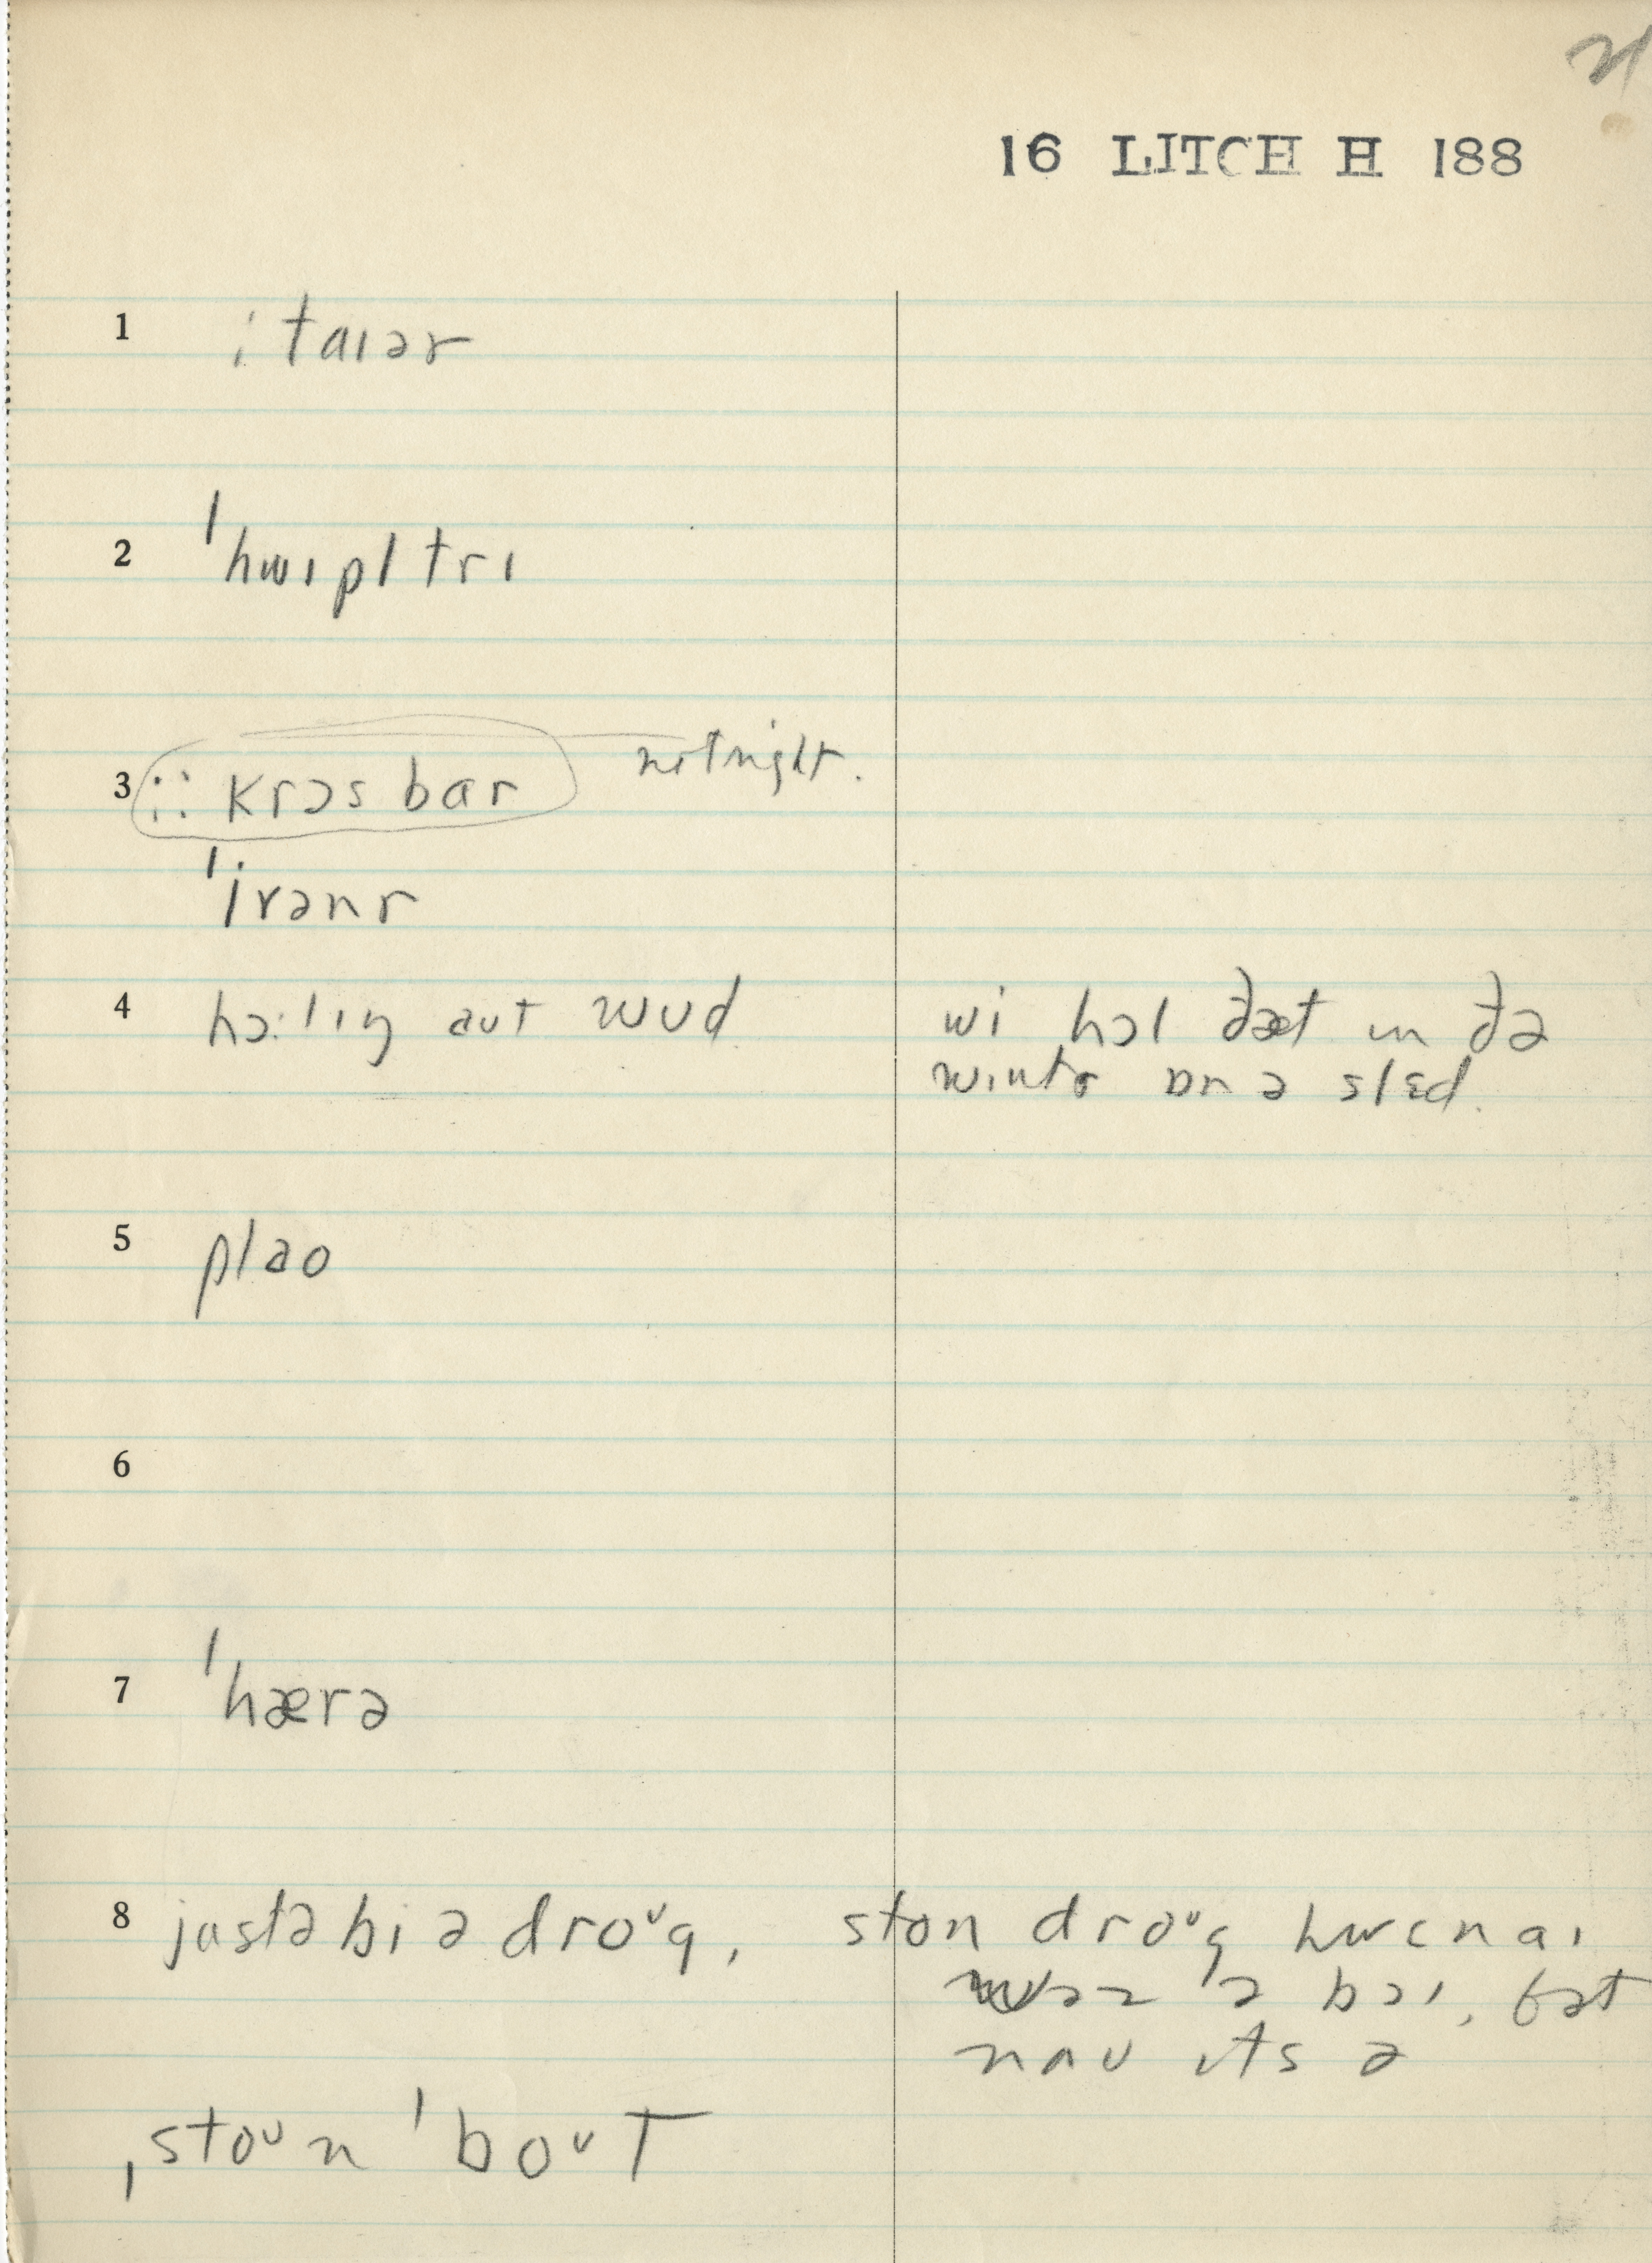 16 LITCH H 188
1 ⁝ taɪər
2 ˈhwɪpl trɪ
3 ⁝⁝ krɔs bar not right.
ˈivənr
4 hɔ:lɪŋ aut wud wi hɔl ðæt ɪn ðə
wɪntɚ ɒn ə slɛd.
5 plao
6
7 ˈhærə
8 justə bi ə droᶷg, ston droᶷg hwɛn aɪ
wəz ə bɔɪ, bət
naʊ ɪts ə
ˌstoᶷn ˈboᶷt